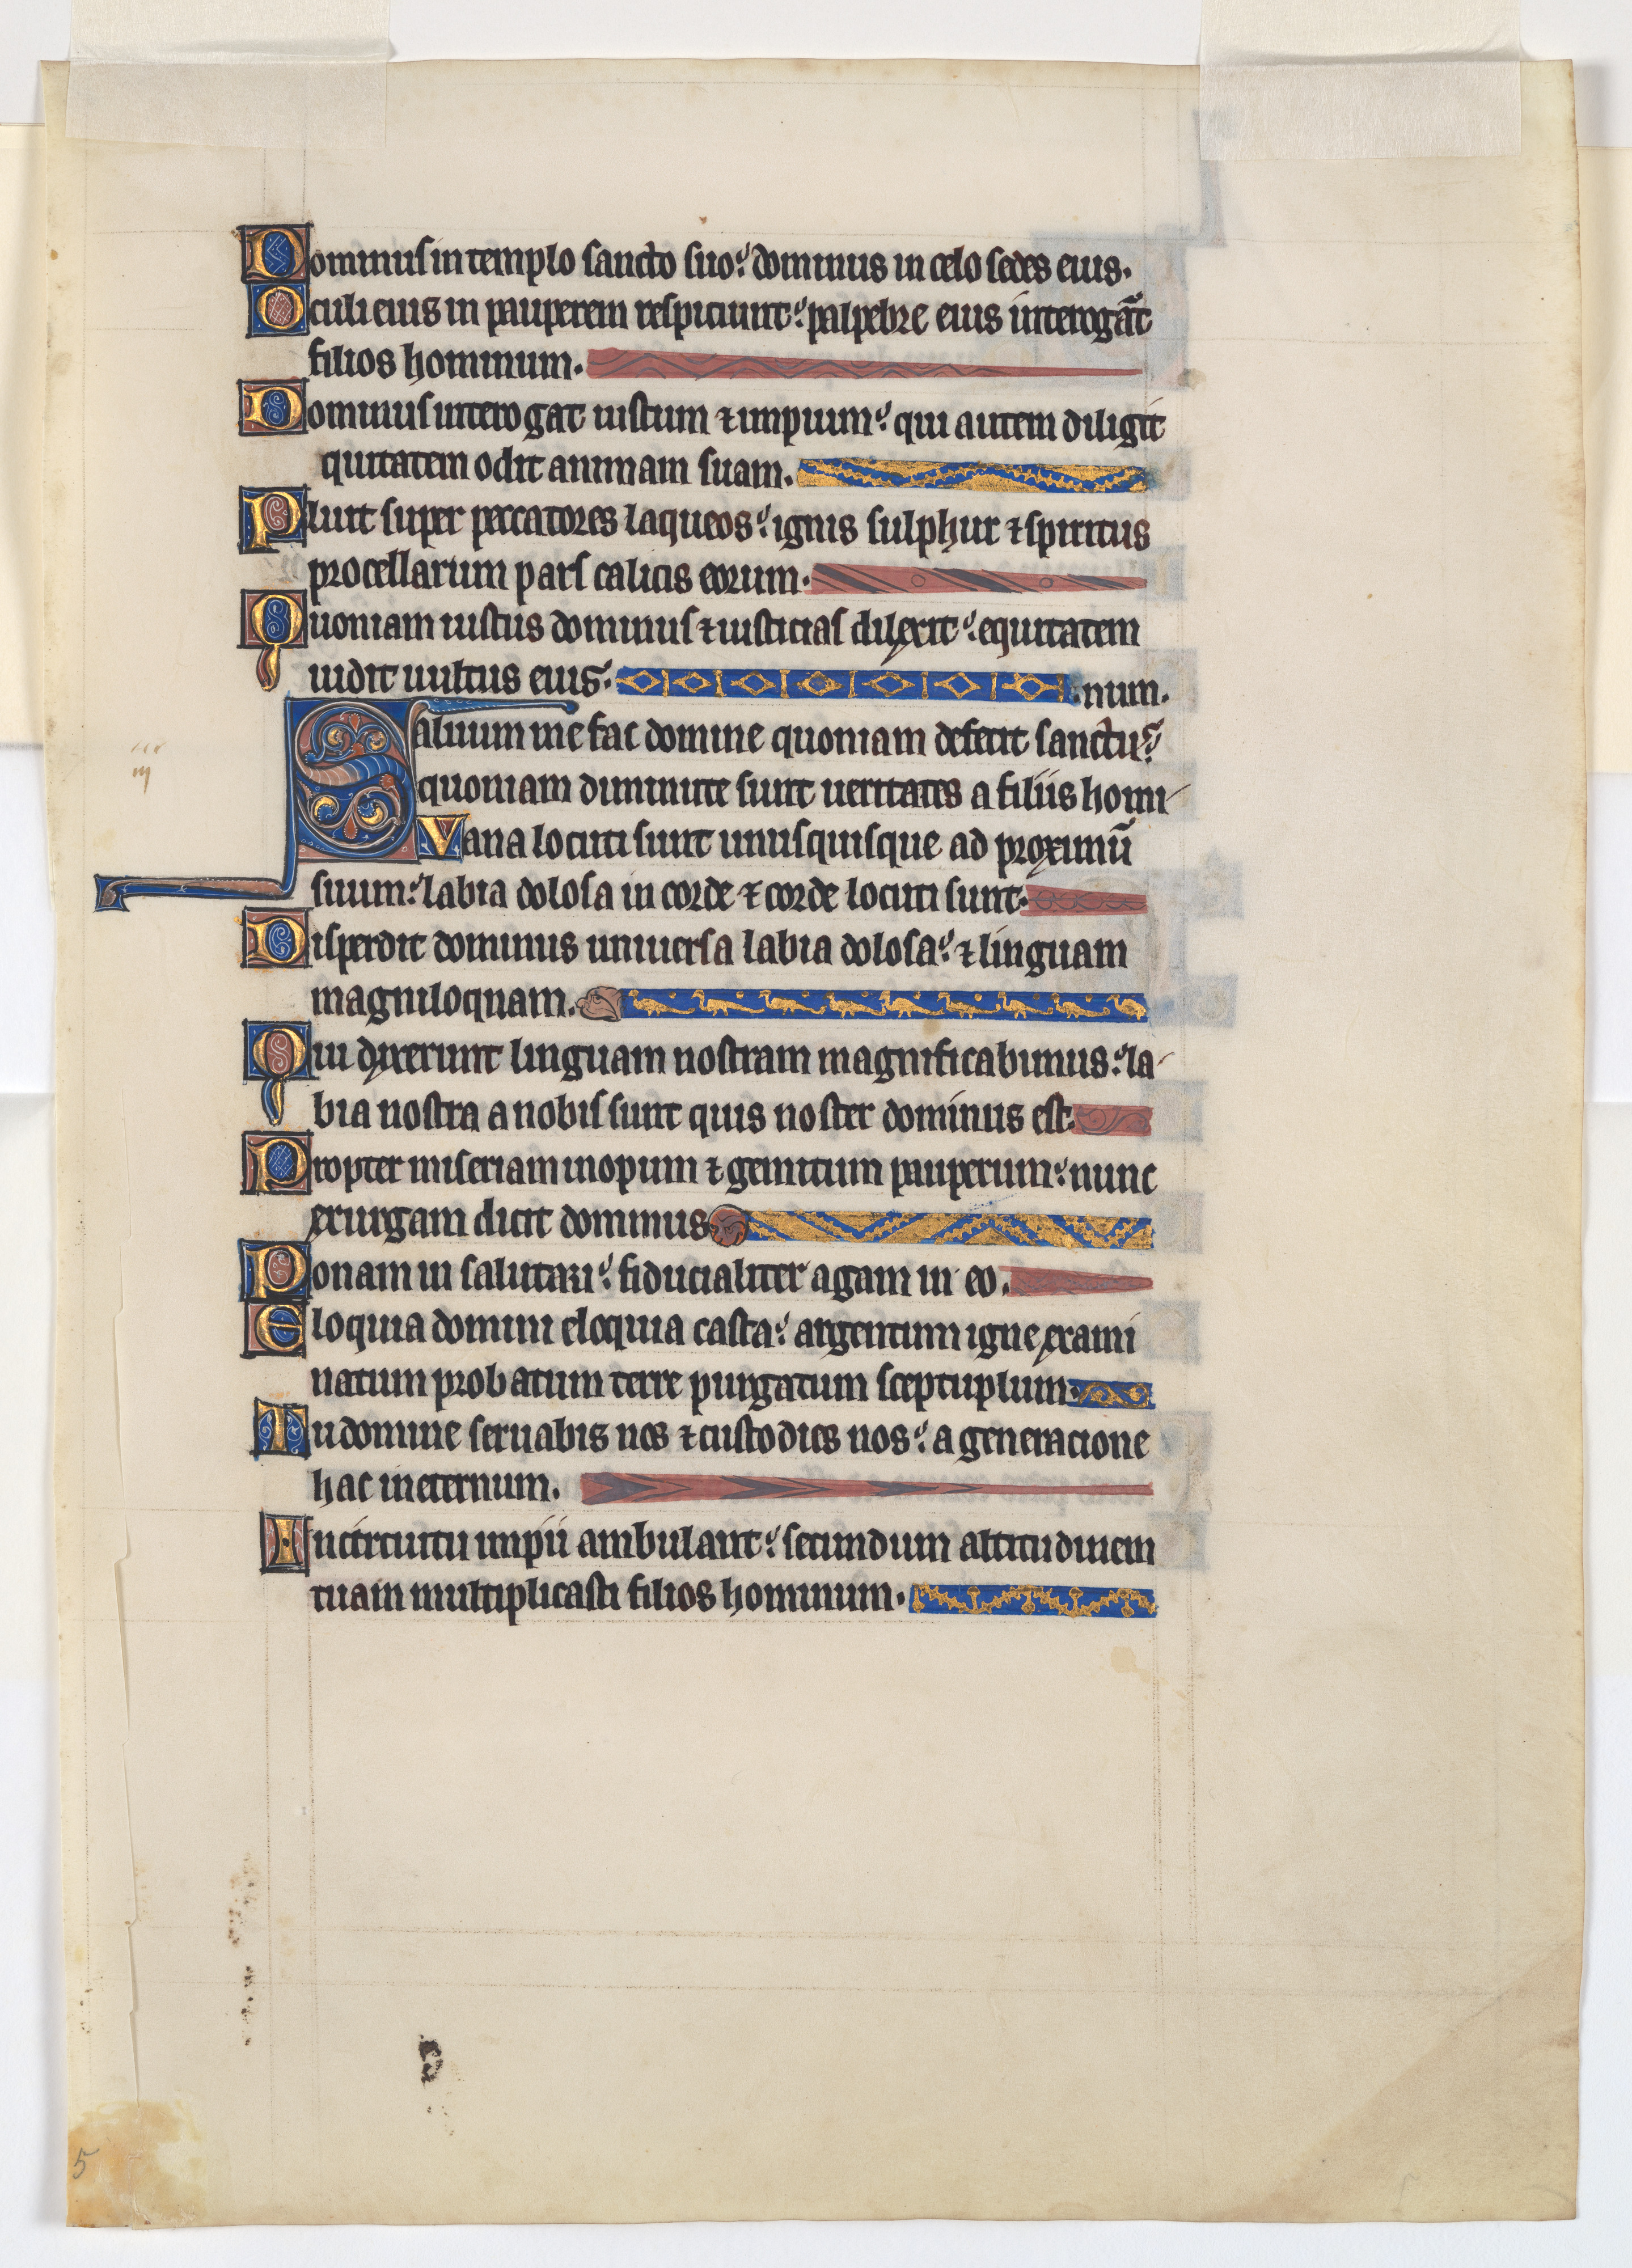 Dominus in templo sancto suo: dominus in celo sedes eius.
Oculi eius in pauperem respiciunt: palpebre eius interogāt
filios hominum.
Dominus interogat iustum ⁊ impium: qui autem diligit
quitatem odit animam suam.
Pluit super peccatores laqueos: ignis sulphur ⁊ spiritus
procellarum pars calicis eorum.
Quoniam iustus dominus ⁊ iusticias dilexit: equitatem
uidit uultus eius. num.
Saluum me fac domine quoniam defecit sanctus:
quoniam diminute sunt ueritates a filiis homi-
Vana locuti sunt unusquisque ad proximū
suum: labia dolosa in corde ⁊ corde locuti sunt.
Disperdit dominus uniuersa labia dolosa: ⁊ linguam
magniloquam.
Qui dixerunt linguam nostram magnificabimus: la-
bia nostra a nobis sunt quis noster dominus est.
Propter miseriam inopum ⁊ gemitum pauperum: nunc
exurgam dicit dominus.
Ponam in salutari: fiducialiter agam in eo.
Eloquia domini eloquia casta: argentum igne exami
natum probatum terre purgatum sceptuplum.
Tu domine seruabis nos ⁊ custodies nos: a generacione
hac in eternum.
In circuitu impii ambulant: secundum altitudinem
tuam multiplicasti filios hominum.
5